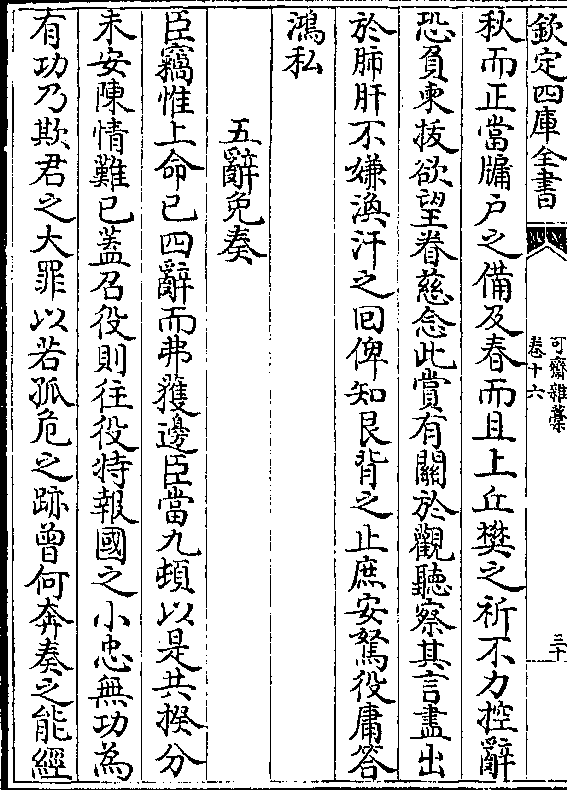 欽定四庫全書
可齋雜藁
卷十六
三十
秋而正當牖户之備及春而且上丘樊之祈不力控辭
恐負柬拔欲望眷慈念此賞有關於觀聽察其言盡出
於肺肝不嫌渙汗之囘俾知艮背之止庶安駑役庸答
鴻私
五辭免奏
臣竊惟上命已四辭而弗獲邊臣當九頓以是共揆分
未安陳情難已蓋召役則往役特報國之小忠無功為
有功乃欺君之大罪以若孤危之跡曾何奔奏之能經